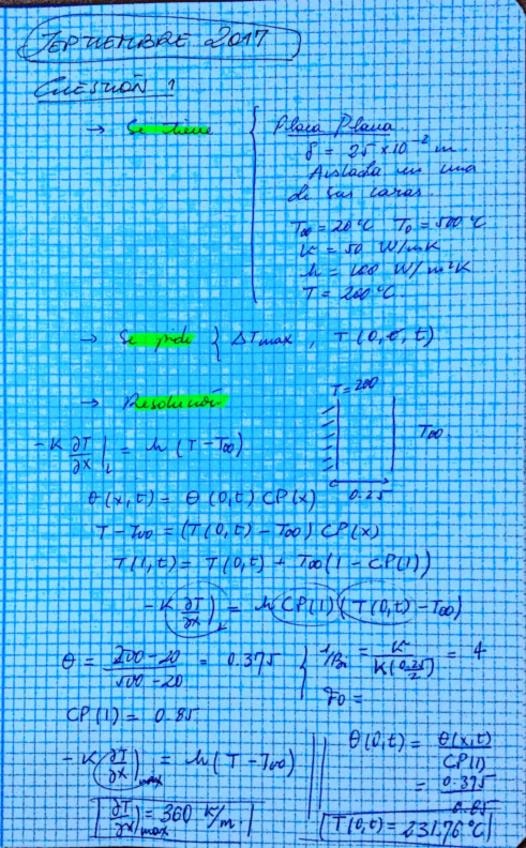 SEPTIEMBRE 2017
CUESTIÓN 1
→ Se tiene
Placa Plana
δ = 25 x10⁻² m.
Aislada en una
de sus caras.
T∞ = 20°C T₀ = 500°C
K = 50 W/mK
h = 100 W/m²K
T = 200°C.
→ Se pide { ΔTmax , T(0,t)
→ Resolución
T=200
-K ∂T/∂x)L = h (T-T∞)
T∞.
0.25
θ(x,t) = θ(0,t) CP(x)
T-T∞ = (T(0,t) - T∞) CP(x)
T(1,t) = T(0,t) + T∞(1 - CP(1))
-K ∂T/∂x)L = h CP(1) (T(0,t) - T∞)
θ = 200-20/500-20 = 0.375 { 1/Bi = K/h(0.25/2) = 4
F₀ =
CP(1) = 0.85
-K ∂T/∂x)max = h(T-T∞)
∂T/∂x)max = 360 K/m.
θ(0,t) = θ(x,t)/CP(1)
= 0.375/0.85
T(0,t) = 231.76°C